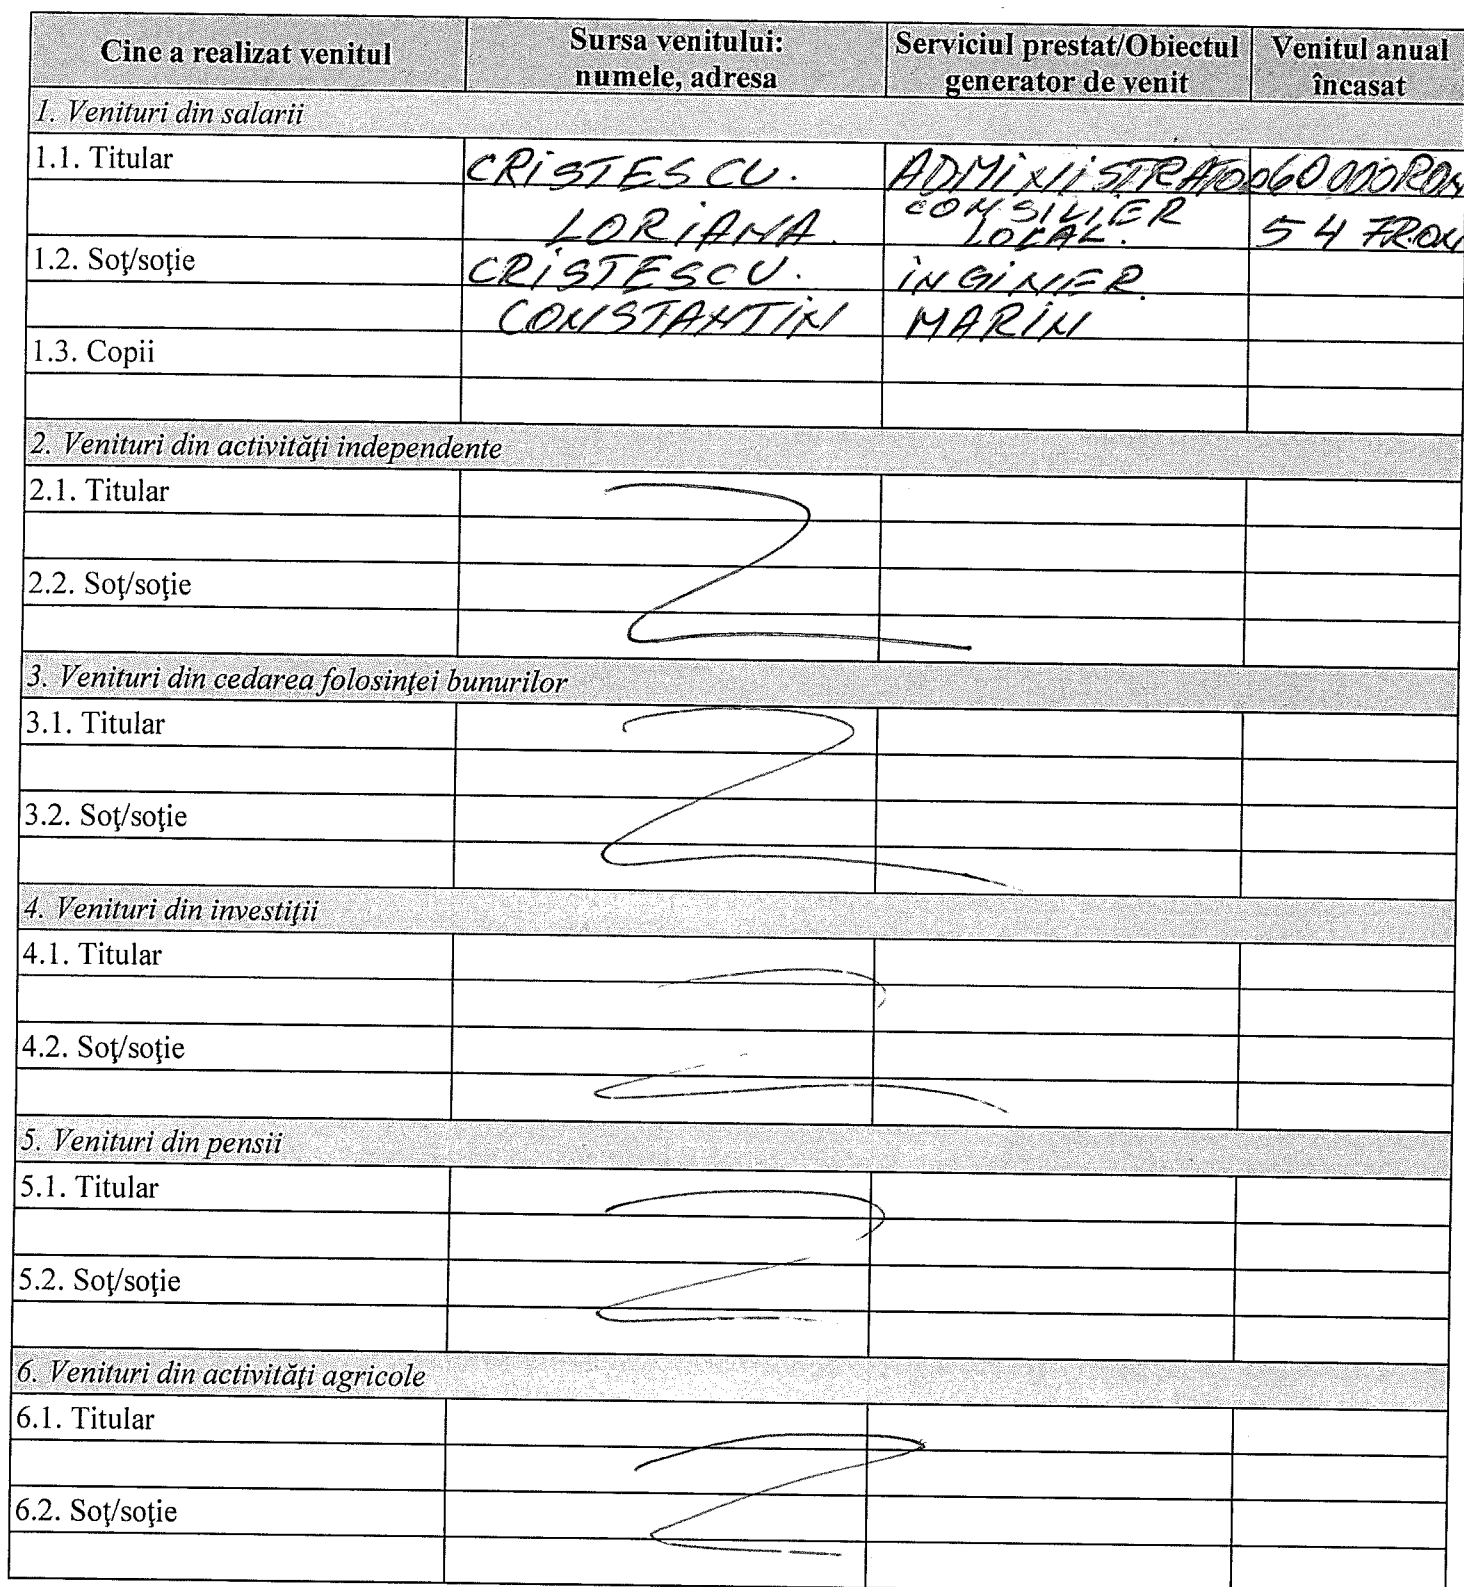 Cine a realizat venitul
Sursa venitului:
numele, adresa
Serviciul prestat/Obiectul
generator de venit
Venitul anual
încasat
1. Venituri din salarii
1.1. Titular
CRISTESCU.
ADMINISTRATOR
60000RON
LORIANA.
CONSILIER
LOCAL.
547RON
1.2. Soţ/soţie
CRISTESCU.
INGINER.
CONSTANTIN
MARIN
1.3. Copii
2. Venituri din activităţi independente
2.1. Titular
2.2. Soţ/soţie
3. Venituri din cedarea folosinţei bunurilor
3.1. Titular
3.2. Soţ/soţie
4. Venituri din investiţii
4.1. Titular
4.2. Soţ/soţie
5. Venituri din pensii
5.1. Titular
5.2. Soţ/soţie
6. Venituri din activităţi agricole
6.1. Titular
6.2. Soţ/soţie